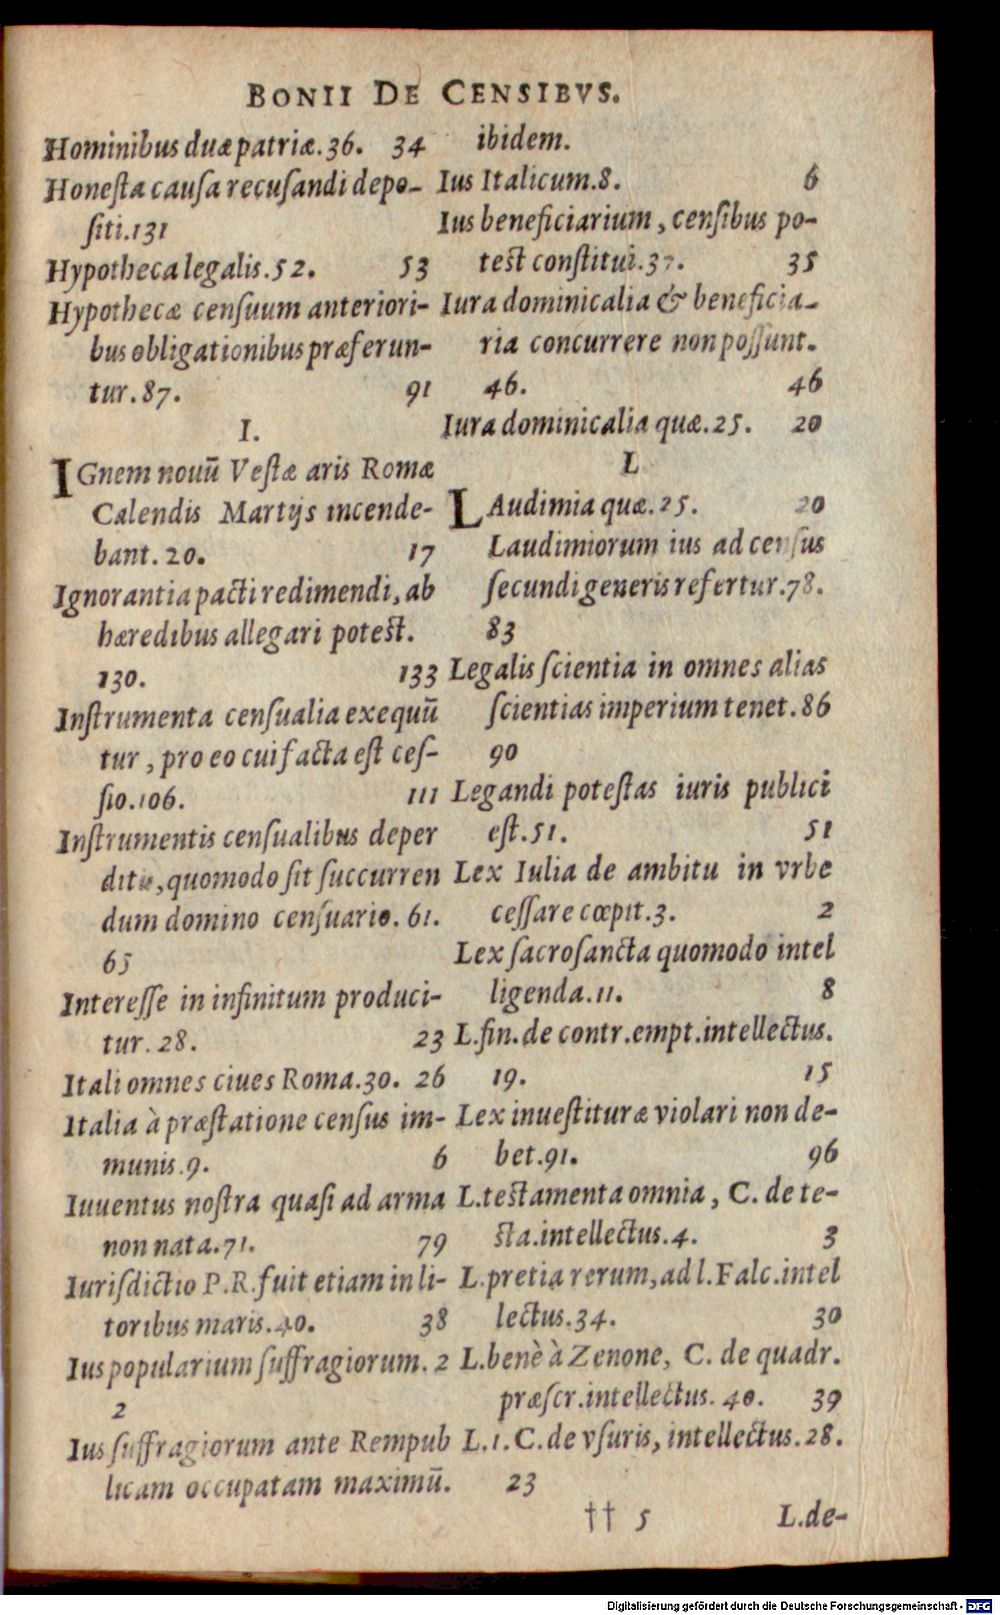 BONII DE CENSIBVS.
Hominibus duæ patriæ. 36. 34
Honeſta cauſa recuſandi depo-
ſiti. 131
Hypotheca legalis. 52. 53
Hypothecæ cenſuum anteriori-
bus obligationibus præferun-
tur. 87. 91
I.
IGnem nouũ Veſtæ aris Romæ
Calendis Martijs incende-
bant. 20. 17
Ignorantia pacti redimendi, ab
hæredibus allegari poteſt.
130. 133
Inſtrumenta cenſualia exequũ
tur, pro eo cui facta eſt ceſ-
ſio. 106. 111
Inſtrumentis cenſualibus deper
ditis, quomodo ſit ſuccurren
dum domino cenſuario. 61.
65
Intereſſe in infinitum produci-
tur. 28. 23
Itali omnes ciues Roma. 30. 26
Italia à præſtatione cenſus im-
munis. 9. 6
Iuuentus noſtra quaſi ad arma
non nata. 71. 79
Iuriſdictio P.R. fuit etiam in li-
toribus maris. 40. 38
Ius popularium ſuffragiorum. 2
2
Ius ſuffragiorum ante Rempub
licam occupatam maximũ.
ibidem.
Ius Italicum. 8. 6
Ius beneficiarium, cenſibus po-
teſt conſtitui. 37. 35
Iura dominicalia & beneficia-
ria concurrere non poſſunt.
46. 46
Iura dominicalia quæ. 25. 20
L
LAudimia quæ. 25. 20
Laudimiorum ius ad cenſus
ſecundi generis refertur. 78.
83
Legalis ſcientia in omnes alias
ſcientias imperium tenet. 86
90
Legandi poteſtas iuris publici
eſt. 51. 51
Lex Iulia de ambitu in vrbe
ceſſare cœpit. 3. 2
Lex ſacroſancta quomodo intel
ligenda. 11. 8
L. fin. de contr. empt. intellectus.
19. 15
Lex inueſtituræ violari non de-
bet. 91. 96
L. teſtamenta omnia, C. de te-
ſta. intellectus. 4. 3
L. pretia rerum, ad l. Falc. intel
lectus. 34. 30
L. benè à Zenone, C. de quadr.
præſcr. intellectus. 40. 39
L. 1. C. de vſuris, intellectus. 28.
23
†† 5 L. de-
Digitalisierung gefördert durch die Deutsche Forschungsgemeinschaft - DFG